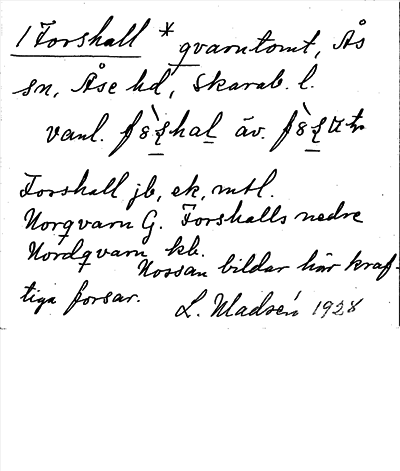 1 Forshall * qvarntomt, Ås
sn, Åse hd, Skarab. l.
vanl. äv.
Forshall jb, ek, mtl.
Norqvarn G. Forshalls nedre
Nordqvarn kb.
Nossan bildar här kraf-
tiga forsar.
L. Madsén 1928